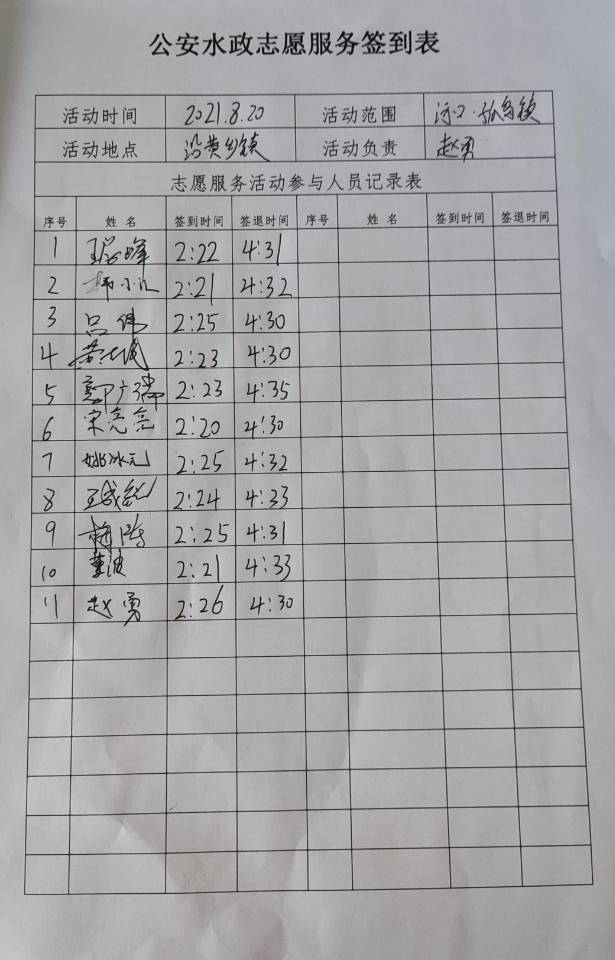 公安水政志愿服务签到表
活动时间 2021.8.20 活动范围 河口·孤岛镇
活动地点 沿黄乡镇 活动负责 赵勇
志愿服务活动参与人员记录表
序号 姓名 签到时间 签退时间 序号 姓名 签到时间 签退时间
1 2:22 4:31
2 2:21 4:32
3 吕伟 2:25 4:30
4 2:23 4:30
5 2:23 4:35
6 宋亮亮 2:20 4:30
7 姚冰元 2:25 4:32
8 2:24 4:33
9 2:25 4:31
10 董波 2:21 4:33
11 赵勇 2:26 4:30